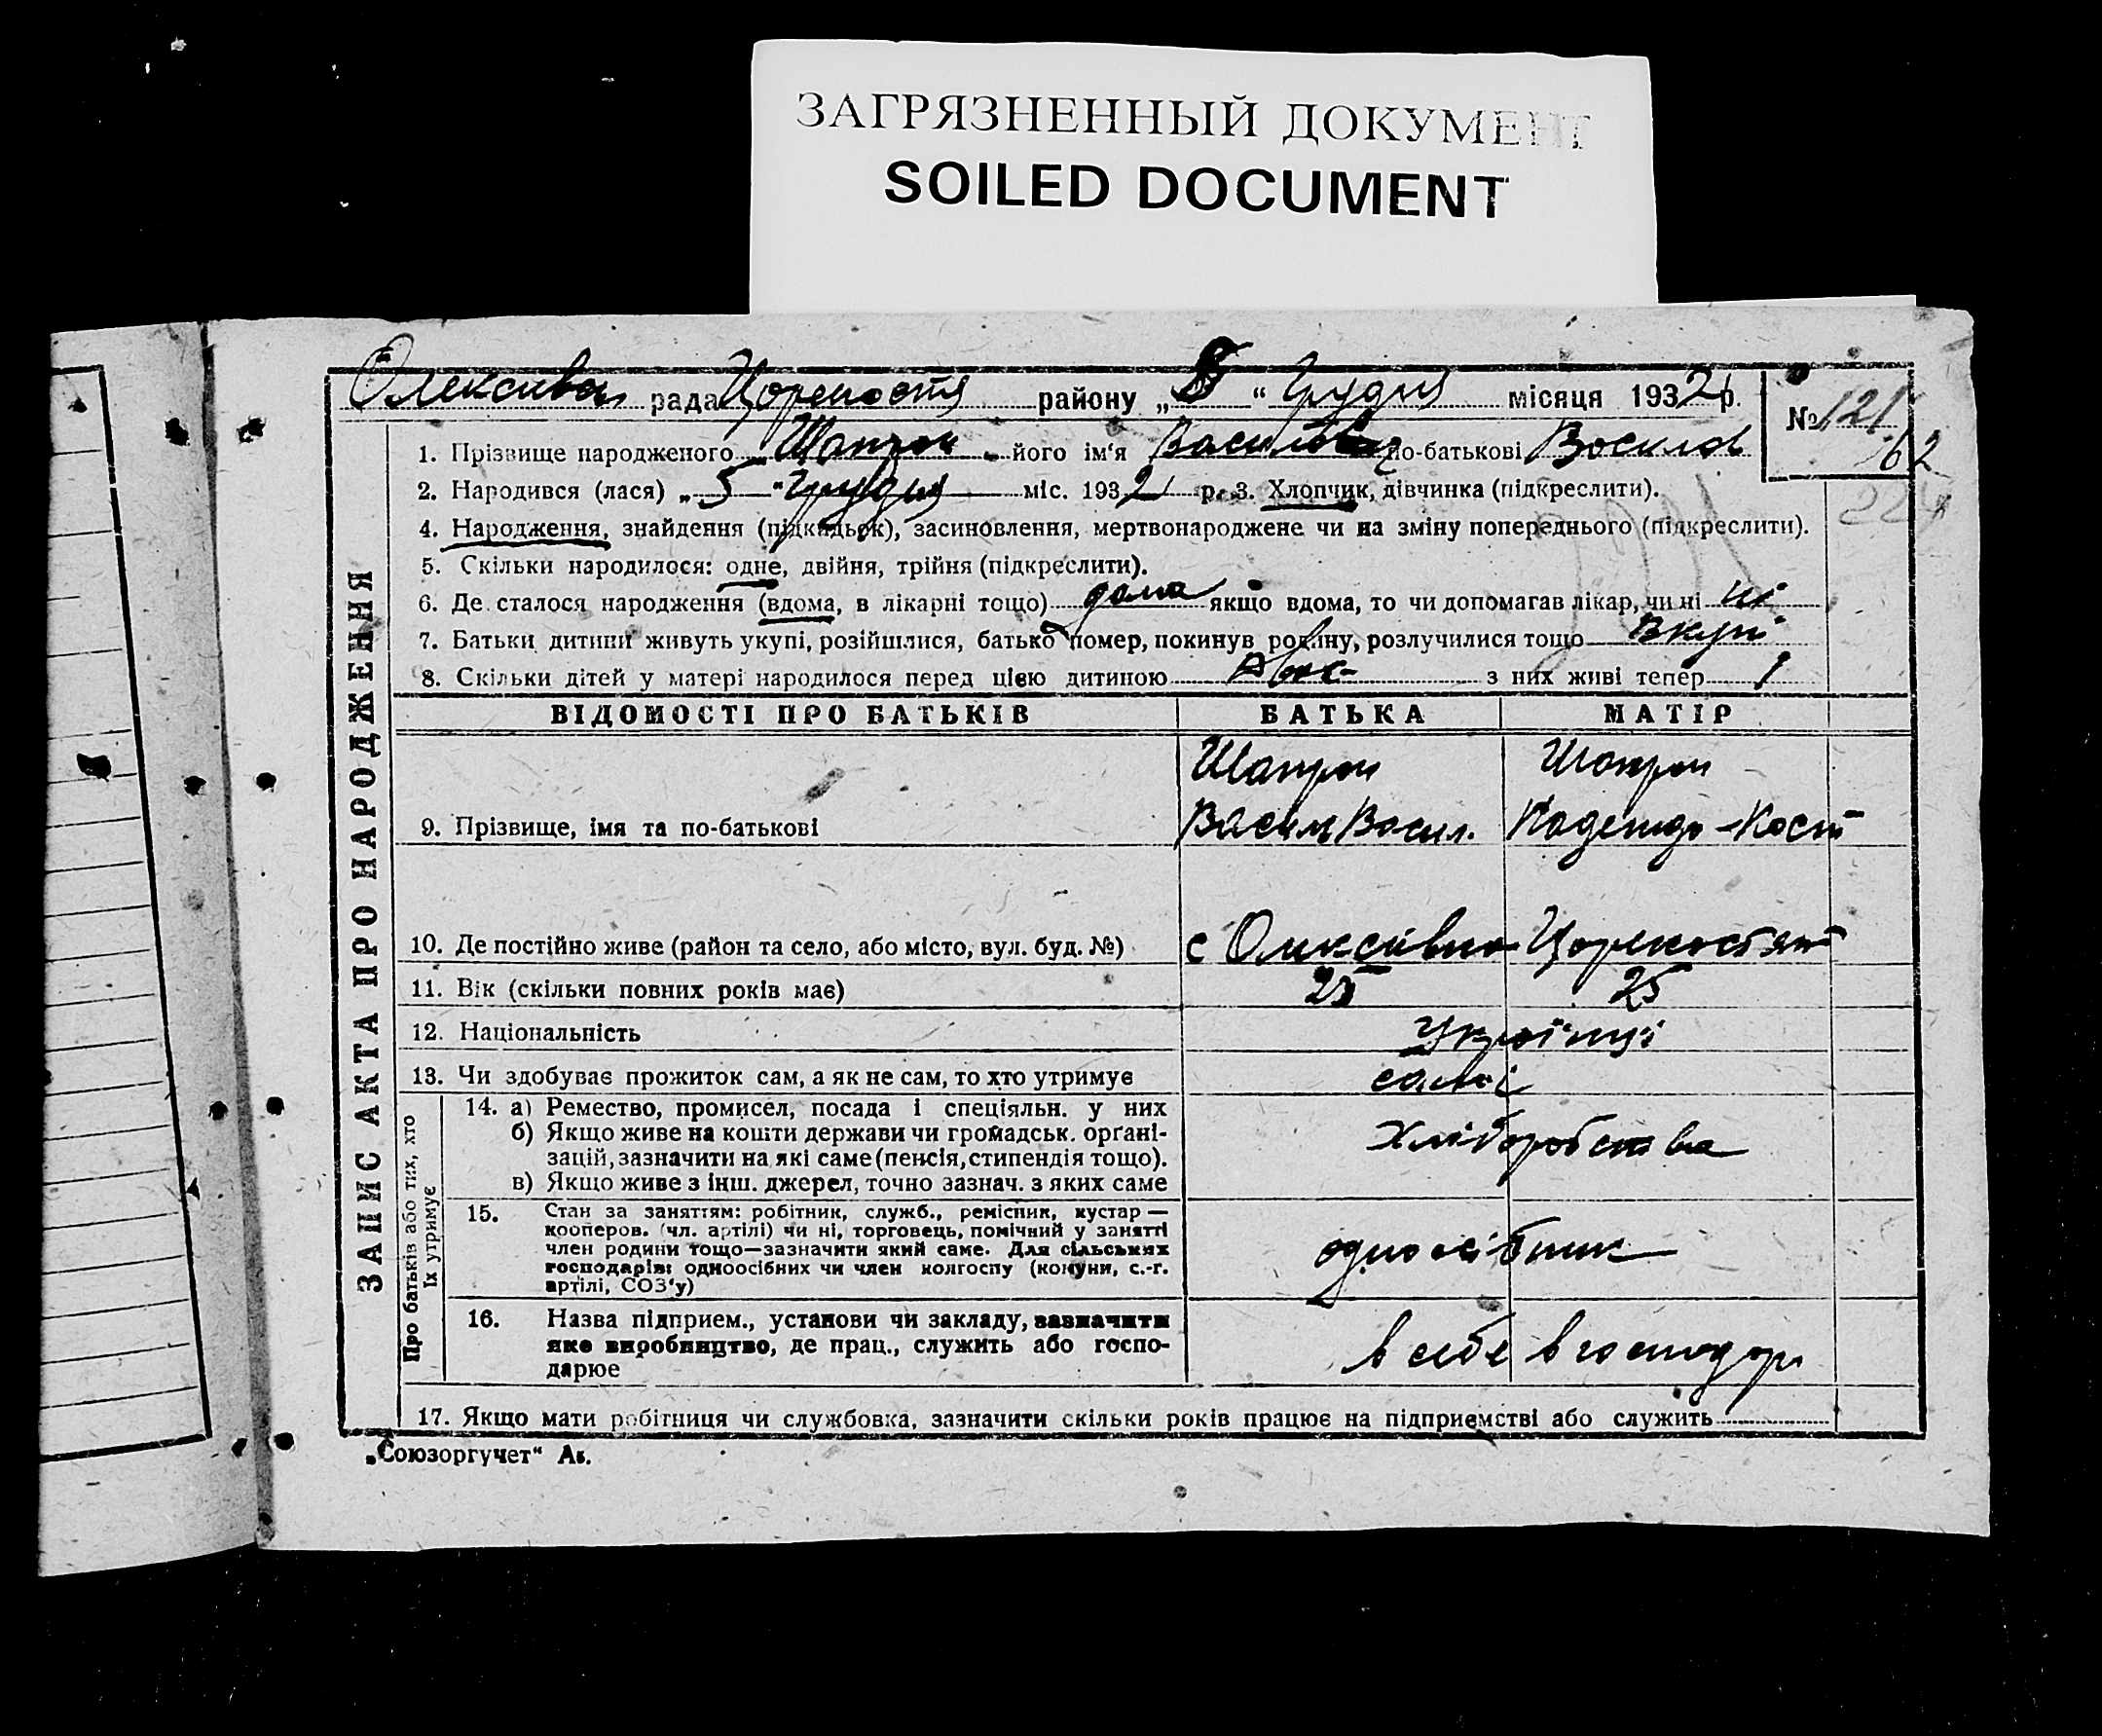 ЗАГРЯЗНЕННЫЙ ДОКУМЕНТ
SOILED DOCUMENT
рада району „ “ Грудня місяця 1932 р. № 121
62
1. Прізвище народженого Шапрон його ім‘я по-батькові Васильов
2. Народився (лася) „ 5 “ Грудня міс. 1932 р. 3. Хлопчик, дівчинка (підкреслити).
4. Народження, знайдення (підкидьок), засиновлення, мертвонароджене чи на зміну попереднього (підкреслити).
5. Скільки народилося: одне, двійня, трійня (підкреслити).
6. Де сталося народження (вдома, в лікарні тощо) дома якщо вдома, то чи допомагав лікар, чи ні ні
7. Батьки дитини живуть укупі, розійшлися, батько помер, покинув родину, розлучилися тощо Вкупі
8. Скільки дітей у матері народилося перед цією дитиною Двоє з них живі тепер 1
ЗАПИС АКТА ПРО НАРОДЖЕННЯ
ВІДОМОСТІ ПРО БАТЬКІВ БАТЬКА МАТІР
Шапрон Шапрон
9. Прізвище, імя та по-батькові Василь Васил. Надежда Кост
10. Де постійно живе (район та село, або місто, вул. буд. №) с Олексіівка
11. Вік (скільки повних років має) 25 25
12. Національність Українці
13. Чи здобуває прожиток сам, а як не сам, то хто утримує самі
Про батьків або тих, хто їх утримує
14. а) Ремество, промисел, посада і спеціяльн. у них
б) Якщо живе на кошти держави чи громадськ. орґані-
зацій, зазначити на які саме (пенсія, стипендія тощо).
в) Якщо живе з інш. джерел, точно зазнач. з яких саме
хліборобства
15. Стан за заняттям: робітник, служб., ремісник, кустар —
кооперов. (чл. артілі) чи ні, торговець, помічний у занятті
член родини тощо—зазначити який саме. Для сільських
господарів: одноосібних чи член колгоспу (комуни, с.-г.
артілі, СОЗ‘у)
одноосібник
16. Назва підприєм., установи чи закладу, зазначити
яке виробництво, де прац., служить або госпо-
дарює
в себе в господар
17. Якщо мати робітниця чи службовка, зазначити скільки років працює на підприємстві або служить
„Союзоргучет“